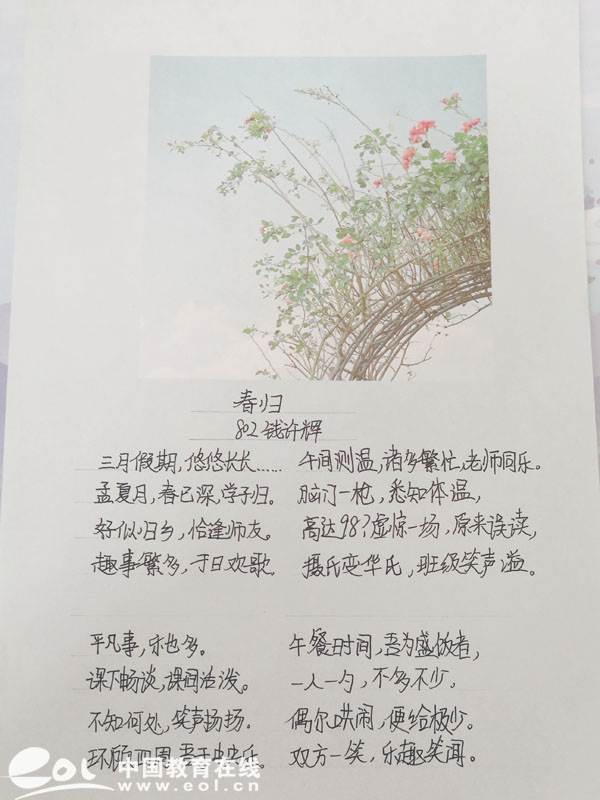 春归
802 钱许辉
三月假期,悠悠长长……
孟夏月,春已深,学子归。
好似归乡,恰逢师友。
趣事繁多,于日欢歌。
午间测温,诸多繁忙,老师同乐。
脑门一枪,悉知体温,
高达98?虚惊一场,原来误读,
摄氏变华氏,班级笑声溢。
平凡事,也多。
课下畅谈,课间活泼。
不知何处,笑声扬扬。
环顾四周,吾于中央乐。
午餐时间,吾为盛饭者,
一人一勺,不多不少。
偶尔哄闹,便给极少。
双方一笑,乐趣笑闻。
eol 中国教育在线
www.eol.cn